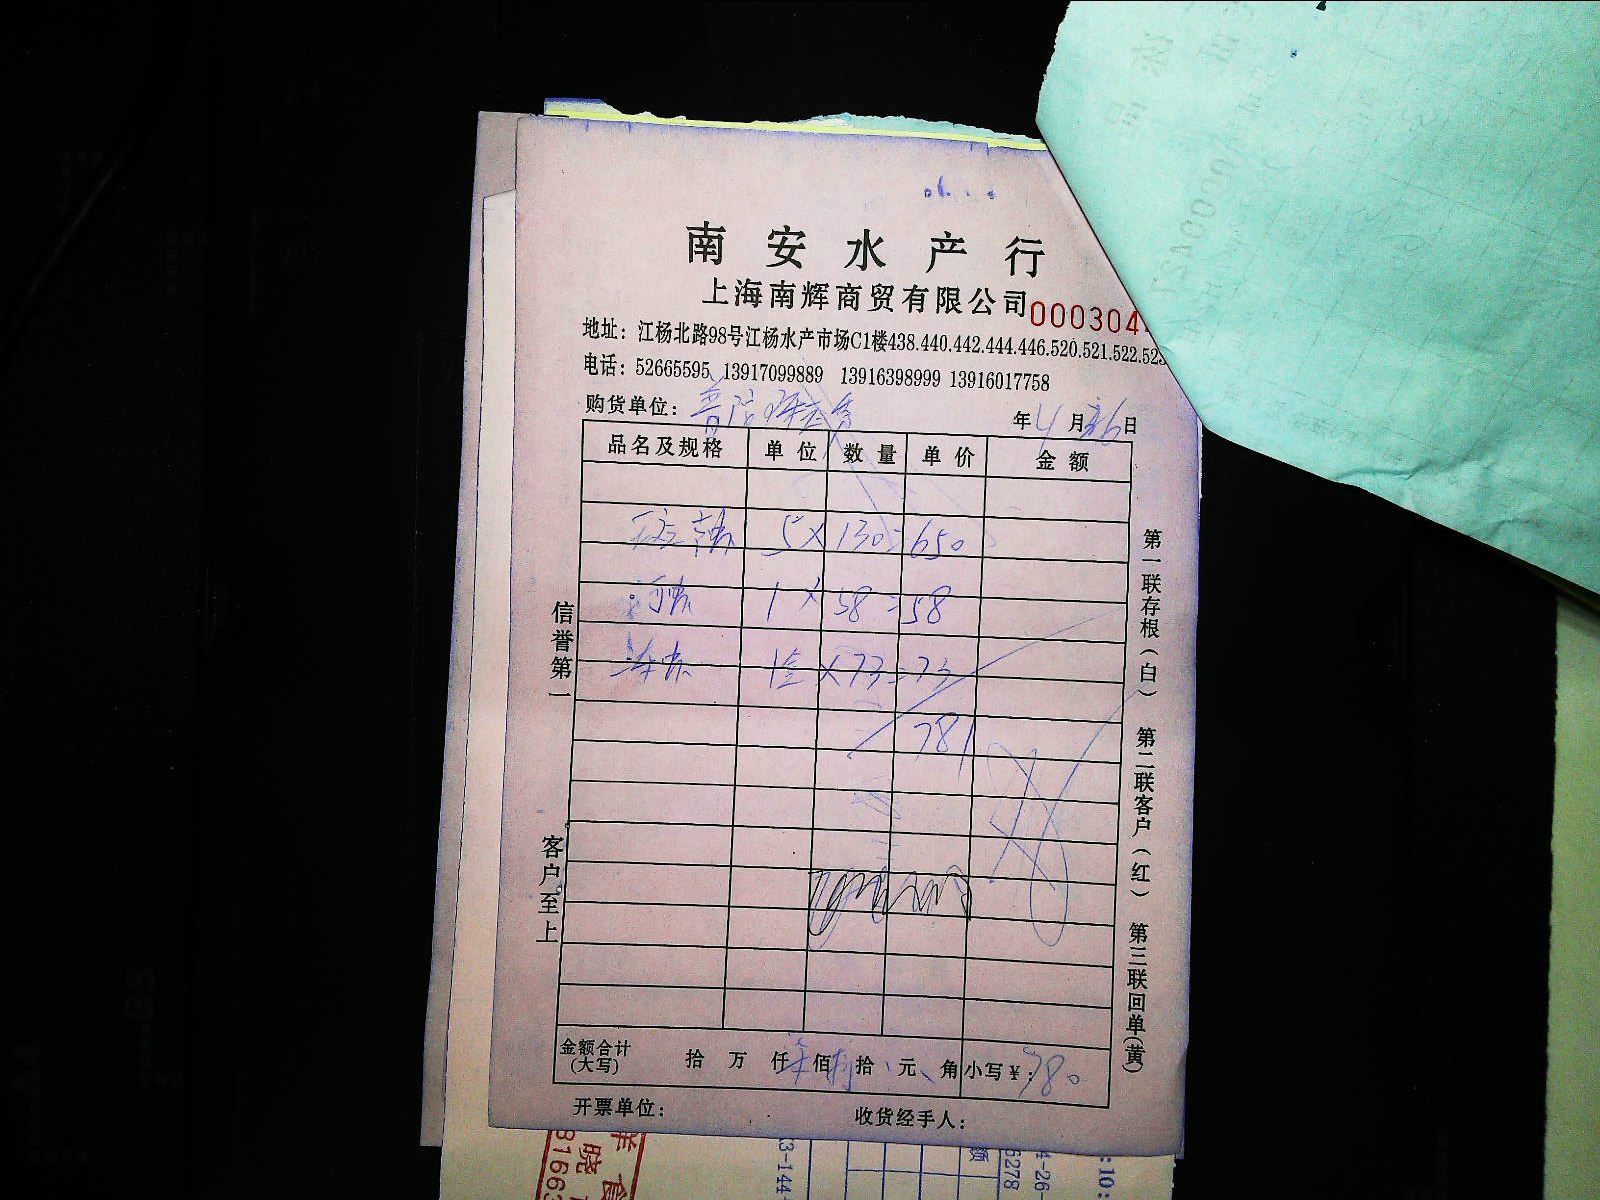 南安水产行
上海南辉商贸有限公司 000304
地址：江杨北路98号江杨水产市场C1楼438.440.442.444.446.520.521.522.523
电话：52665595 13917099889 13916398999 13916017758
购货单位： 年4月26日
品名及规格 单位 数量 单价 金额
5×130=650
1×58=58
×73=73
781
信誉第一
客户至上
第一联存根（白） 第二联客户（红） 第三联回单(黄)
金额合计(大写) 拾 万 仟 佰 拾 元 角 小写￥：780
开票单位： 收货经手人：